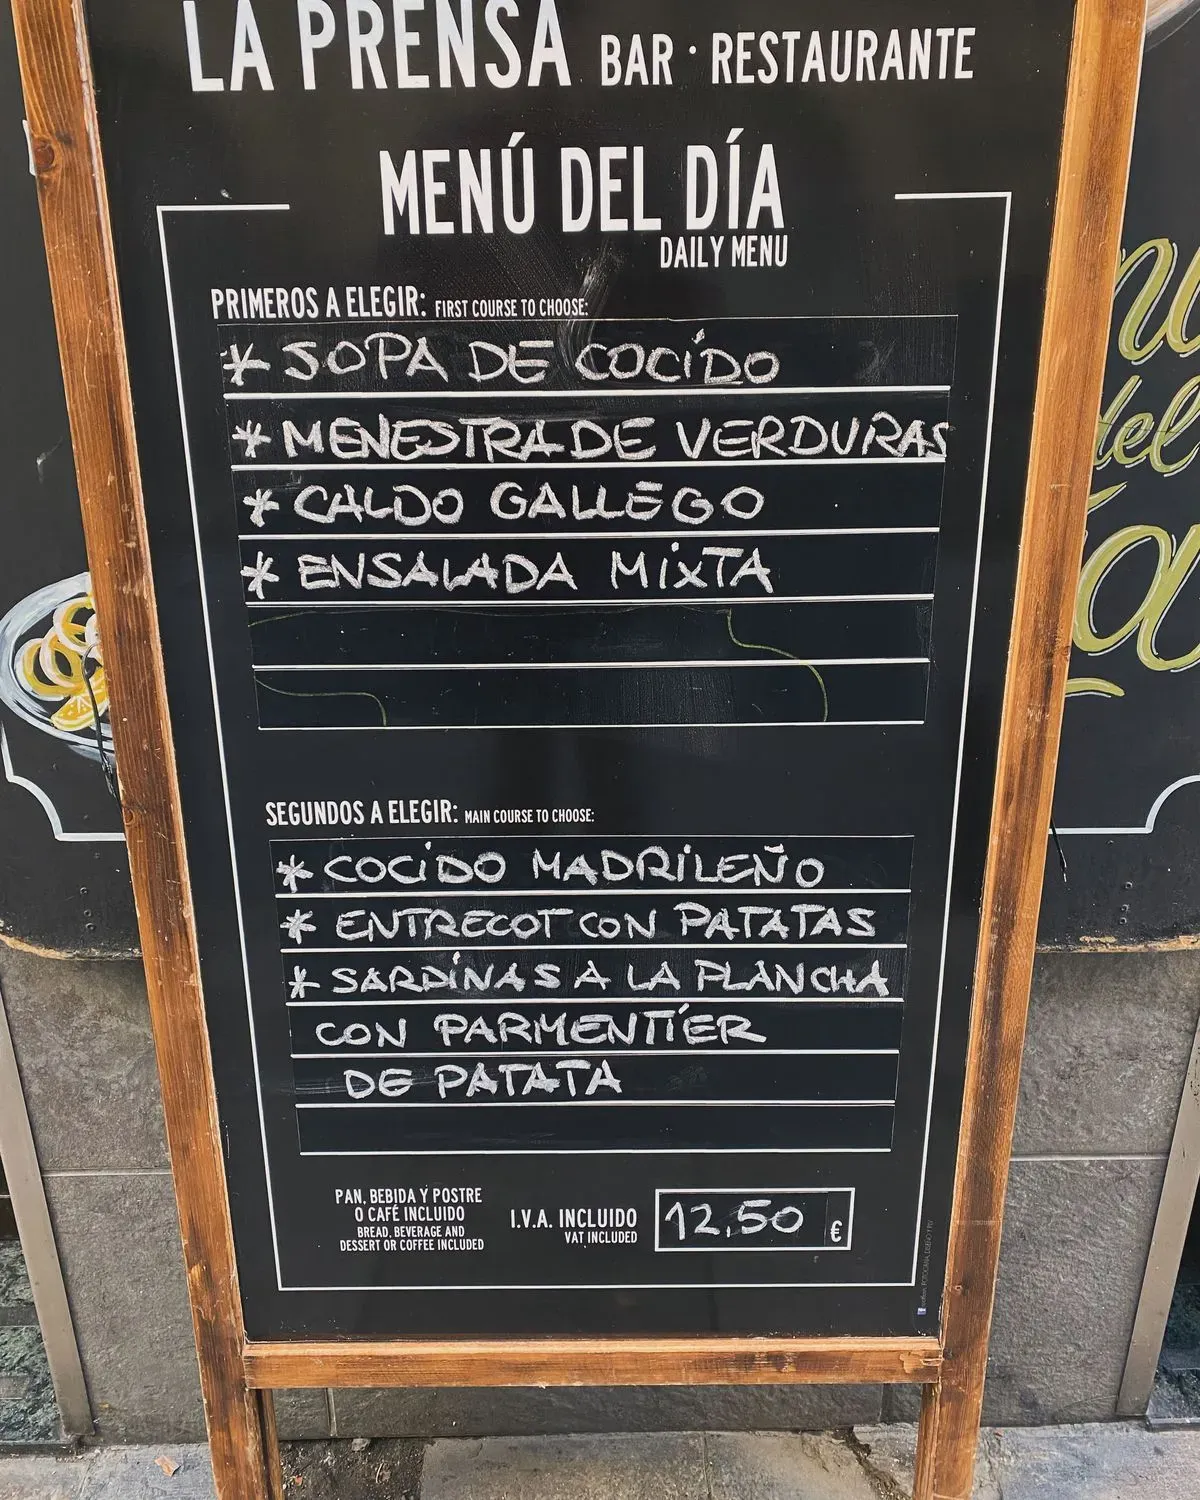 LA PRENSA BAR · RESTAURANTE
MENÚ DEL DÍA
DAILY MENU
PRIMEROS A ELEGIR: FIRST COURSE TO CHOOSE:
* SOPA DE COCIDO
* MENESTRA DE VERDURAS
* CALDO GALLEGO
* ENSALADA MIXTA
SEGUNDOS A ELEGIR: MAIN COURSE TO CHOOSE:
* COCIDO MADRILEÑO
* ENTRECOT CON PATATAS
* SARDÍNAS A LA PLANCHA
CON PARMENTIER
DE PATATA
PAN, BEBIDA Y POSTRE
O CAFÉ INCLUIDO
BREAD, BEVERAGE AND
DESSERT OR COFFEE INCLUDED
I.V.A. INCLUIDO
VAT INCLUDED
12,50 €
del